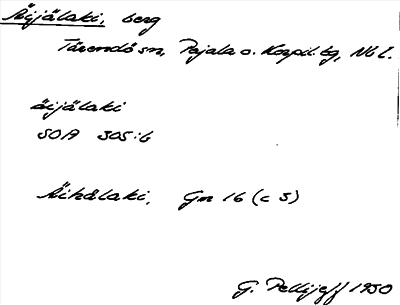 Äijälaki, berg
Tärendö sn, Pajala o. Korpil. tg, Nb l.
äijälaki
SOA 305:6
Äihälaki, Gn 16 (c 5)
G. Pellijeff 1950